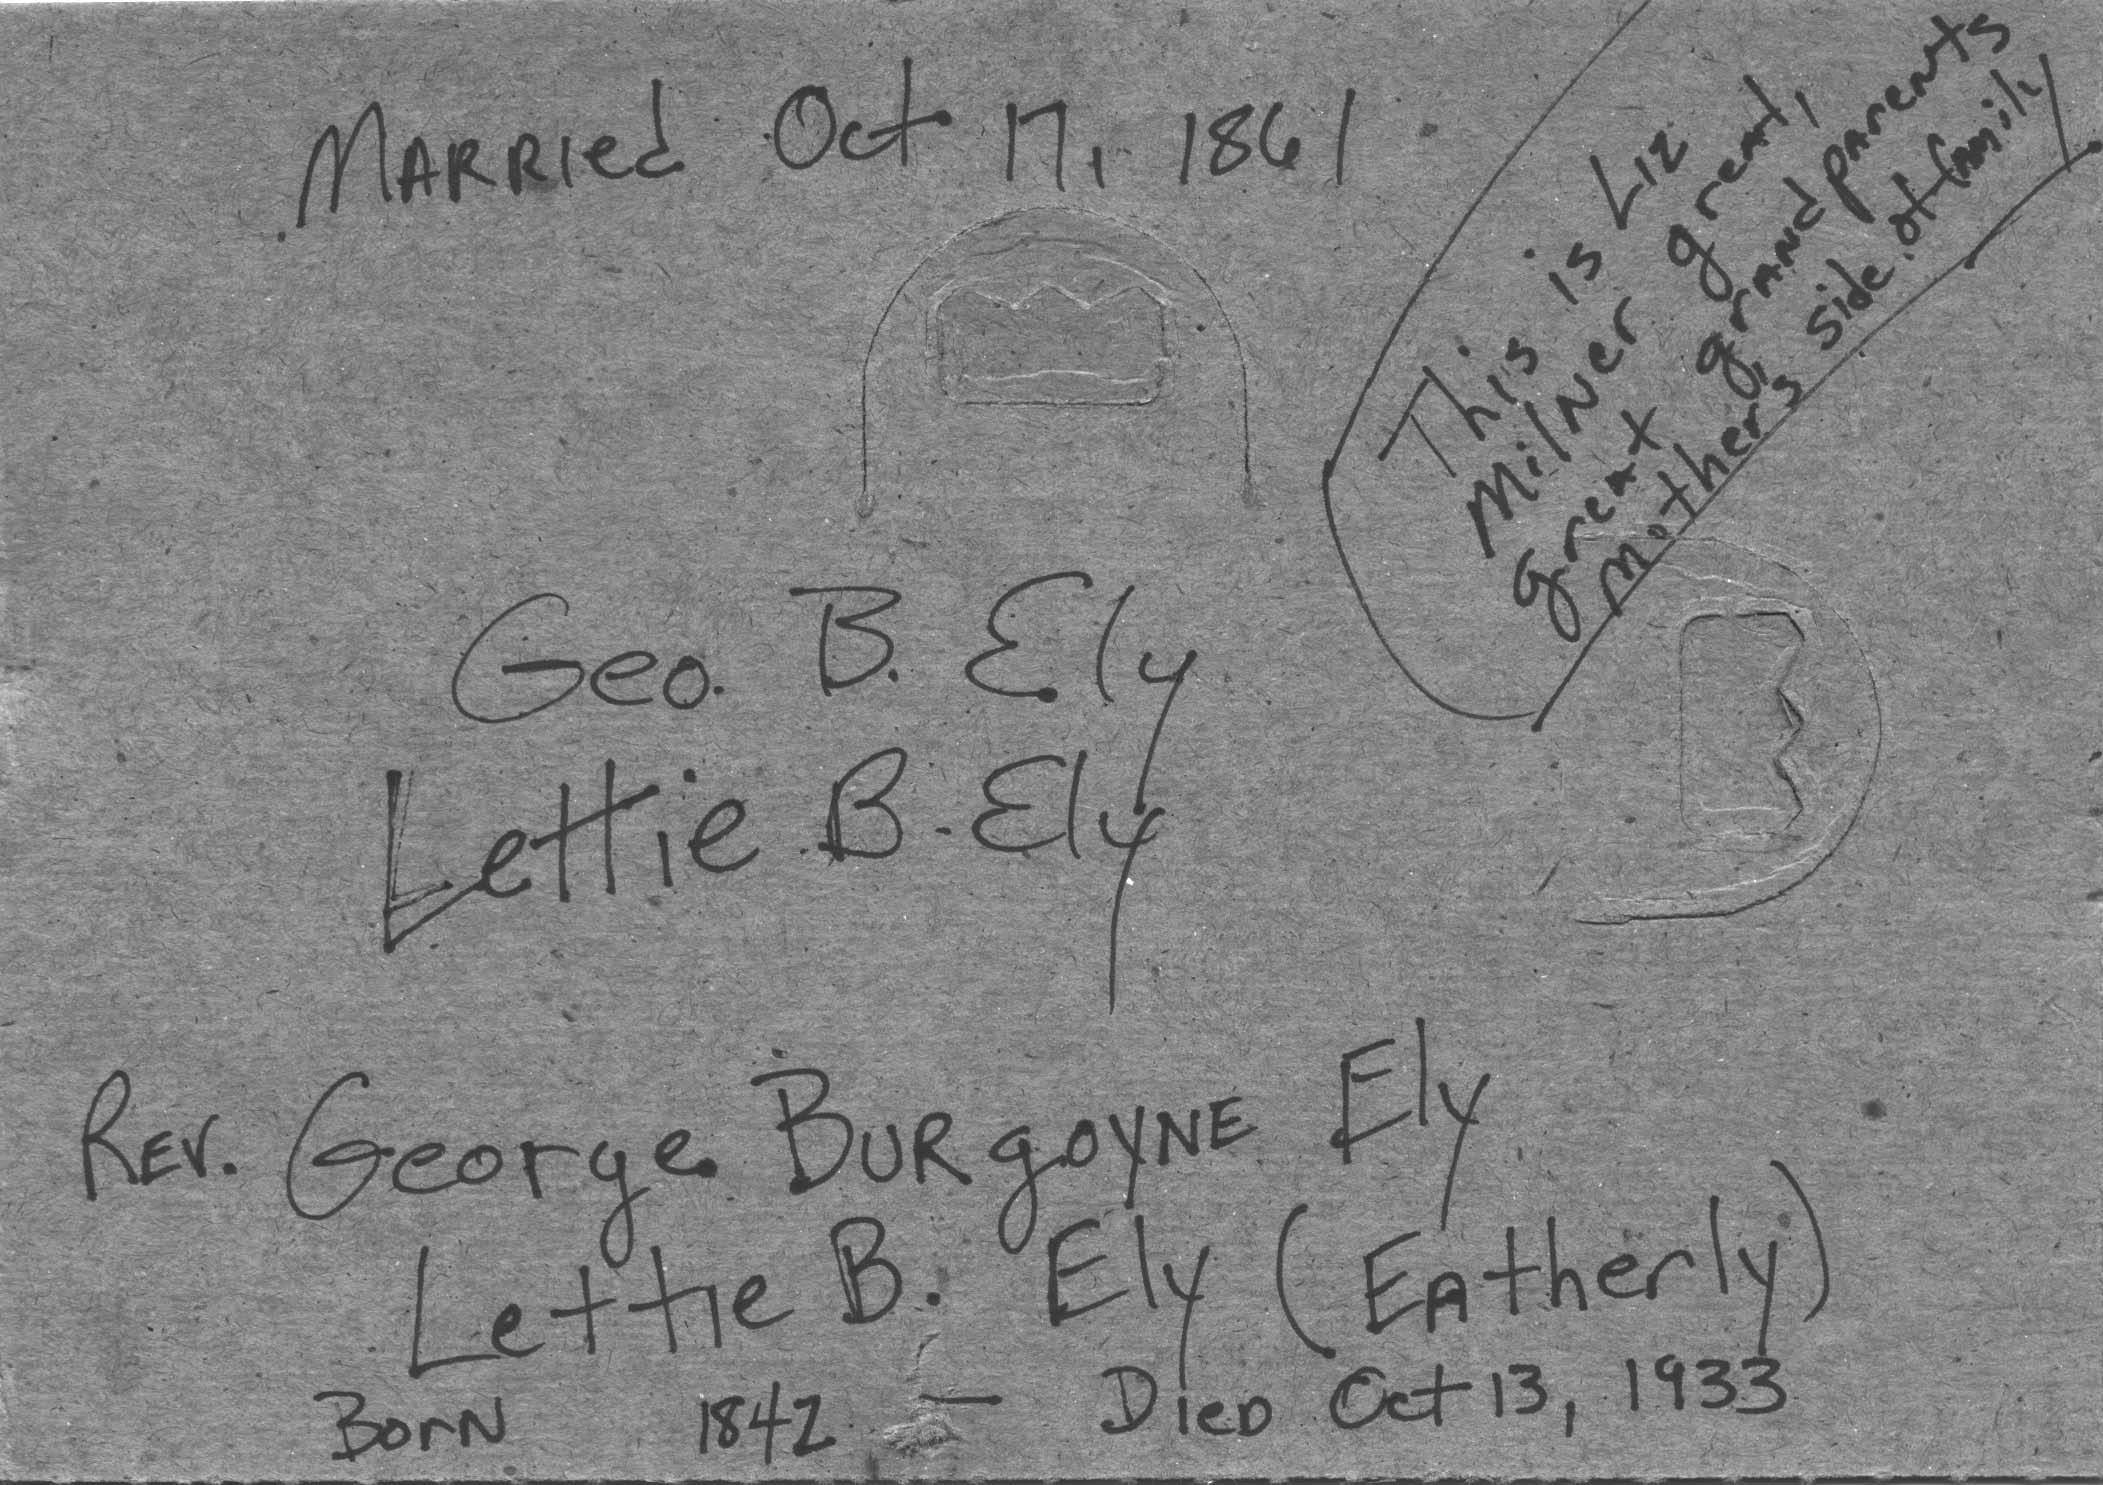 Married Oct 17, 1861
This is Liz
Milner great,
great grandparents
mother's side of family
Geo. B. Ely
Lettie B. Ely
Rev. George Burgoyne Ely
Lettie B. Ely (Eatherly)
Born 1842 — Died Oct 13, 1933